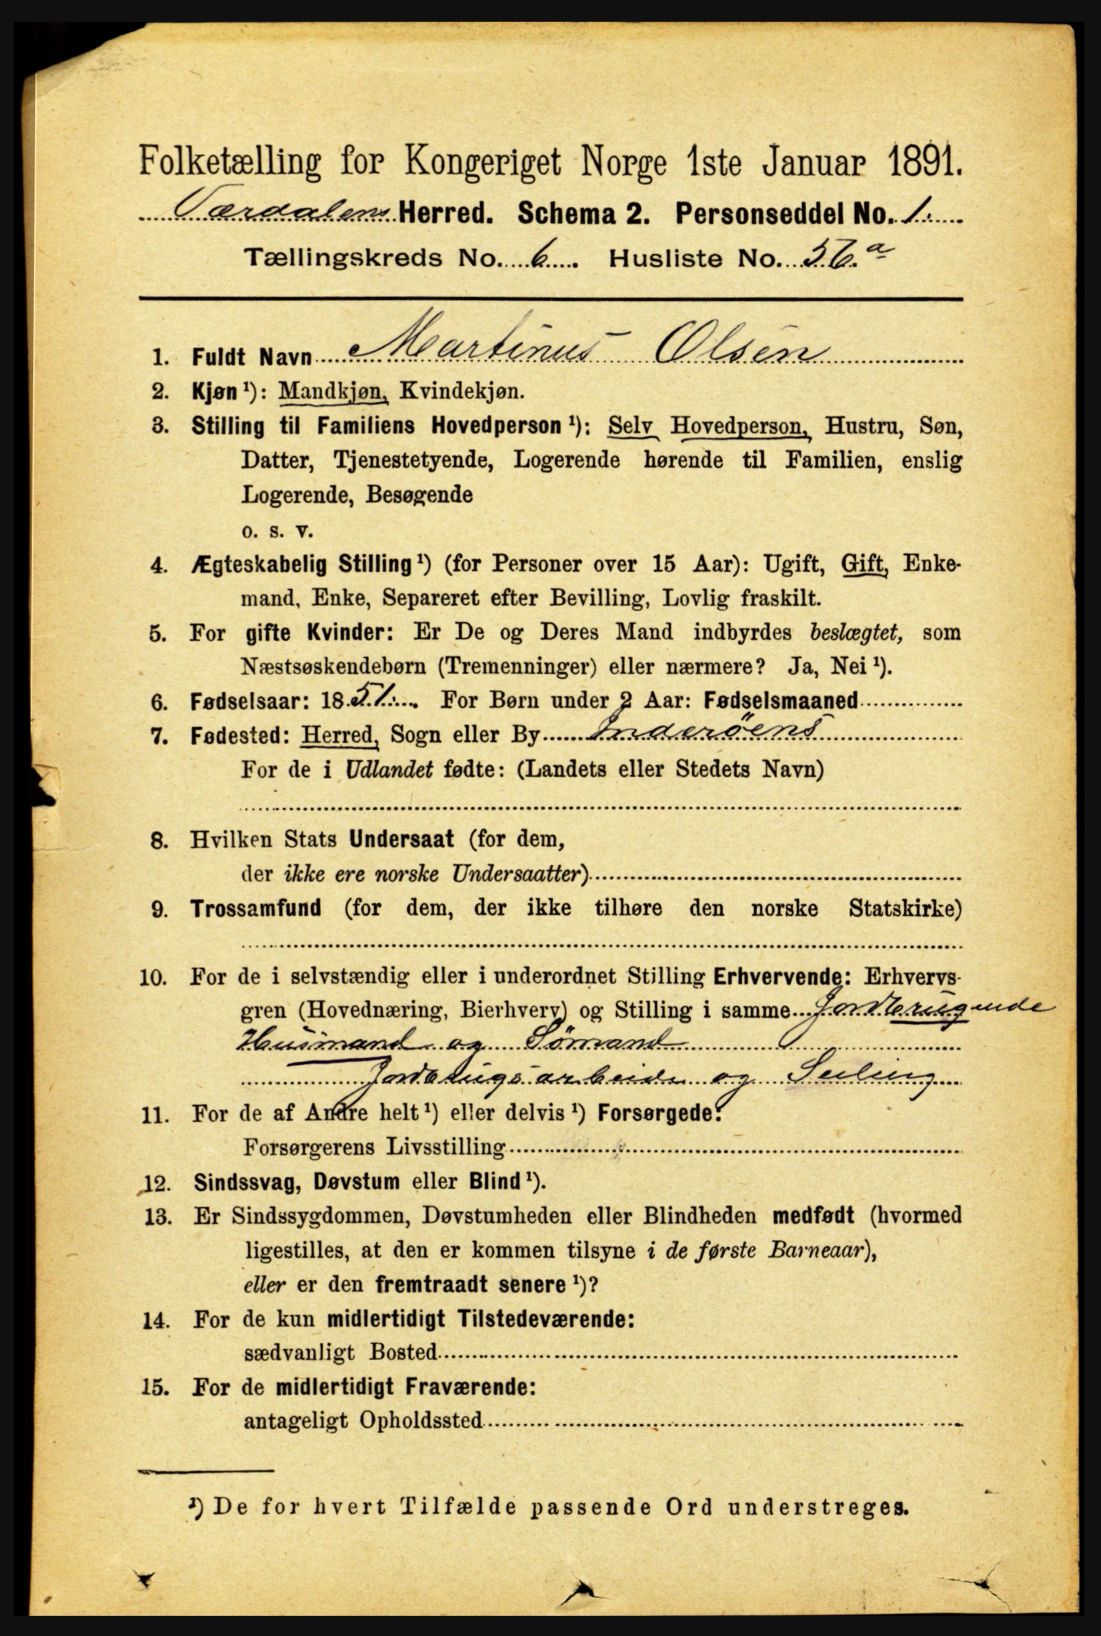 Folketælling for Kongeriget Norge 1ste Januar 1891.
Værdalens Herred. Schema 2. Personseddel No. 1.
Tællingskreds No. 6. Husliste No. 56.a
1. Fuldt Navn Martinus Olsen
2. Kjøn¹): Mandkjøn, Kvindekjøn.
3. Stilling til Familiens Hovedperson¹): Selv Hovedperson, Hustru, Søn,
Datter, Tjenestetyende, Logerende hørende til Familien, enslig
Logerende, Besøgende
o. s. v.
4. Ægteskabelig Stilling¹) (for Personer over 15 Aar): Ugift, Gift, Enke-
mand, Enke, Separeret efter Bevilling, Lovlig fraskilt.
5. For gifte Kvinder: Er De og Deres Mand indbyrdes beslægtet, som
Næstsøskendebørn (Tremenninger) eller nærmere? Ja, Nei¹).
6. Fødselsaar: 1851. For Børn under 2 Aar: Fødselsmaaned
7. Fødested: Herred, Sogn eller By Inderøens
For de i Udlandet fødte: (Landets eller Stedets Navn)
8. Hvilken Stats Undersaat (for dem,
der ikke ere norske Undersaatter)
9. Trossamfund (for dem, der ikke tilhøre den norske Statskirke)
10. For de i selvstændig eller i underordnet Stilling Erhvervende: Erhvervs-
gren (Hovednæring, Bierhverv) og Stilling i samme Jordbrugende
Husmand og Sømand
Jordbrugsarbeide og Seiling
11. For de af Andre helt¹) eller delvis¹) Forsørgede:
Forsørgerens Livsstilling
12. Sindssvag, Døvstum eller Blind¹).
13. Er Sindssygdommen, Døvstumheden eller Blindheden medfødt (hvormed
ligestilles, at den er kommen tilsyne i de første Barneaar),
eller er den fremtraadt senere¹)?
14. For de kun midlertidigt Tilstedeværende:
sædvanligt Bosted
15. For de midlertidigt Fraværende:
antageligt Opholdssted
¹) De for hvert Tilfælde passende Ord understreges.